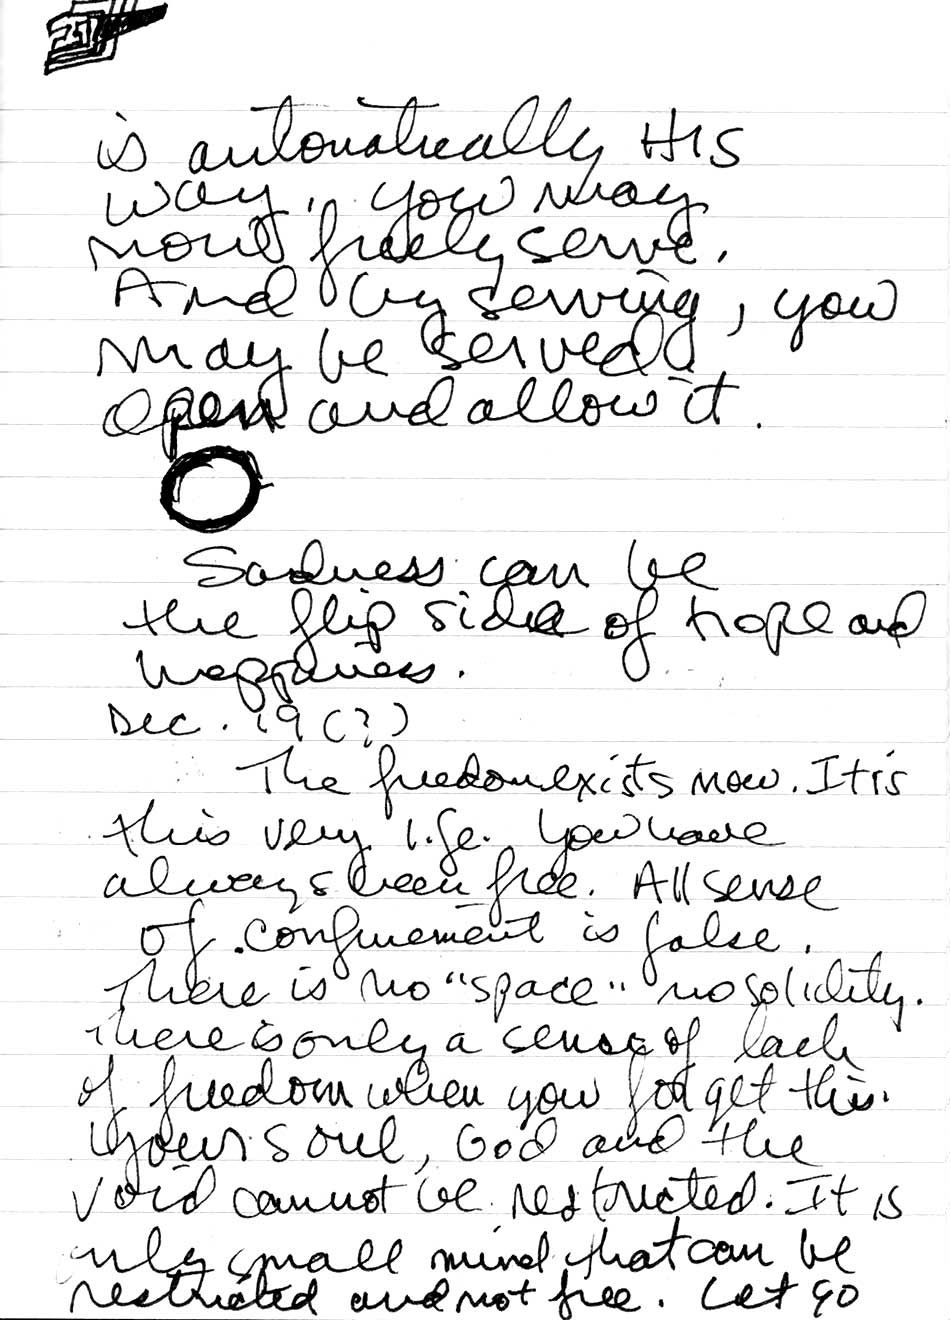 is automatically HIS
way, you may
more freely serve.
And by serving, you
may be served
open and allow it.
Sadness can be
the flip side of hope and
happiness.
Dec. 19 (?)
The freedom exists now. It is
this very life. You have
always been free. All sense
of confinement is false.
There is no "space" no solidity.
There is only a sense of lack
of freedom when you forget this.
Your soul, God and the
void cannot be restricted. It is
only small mind that can be
restricted and not free. Let go